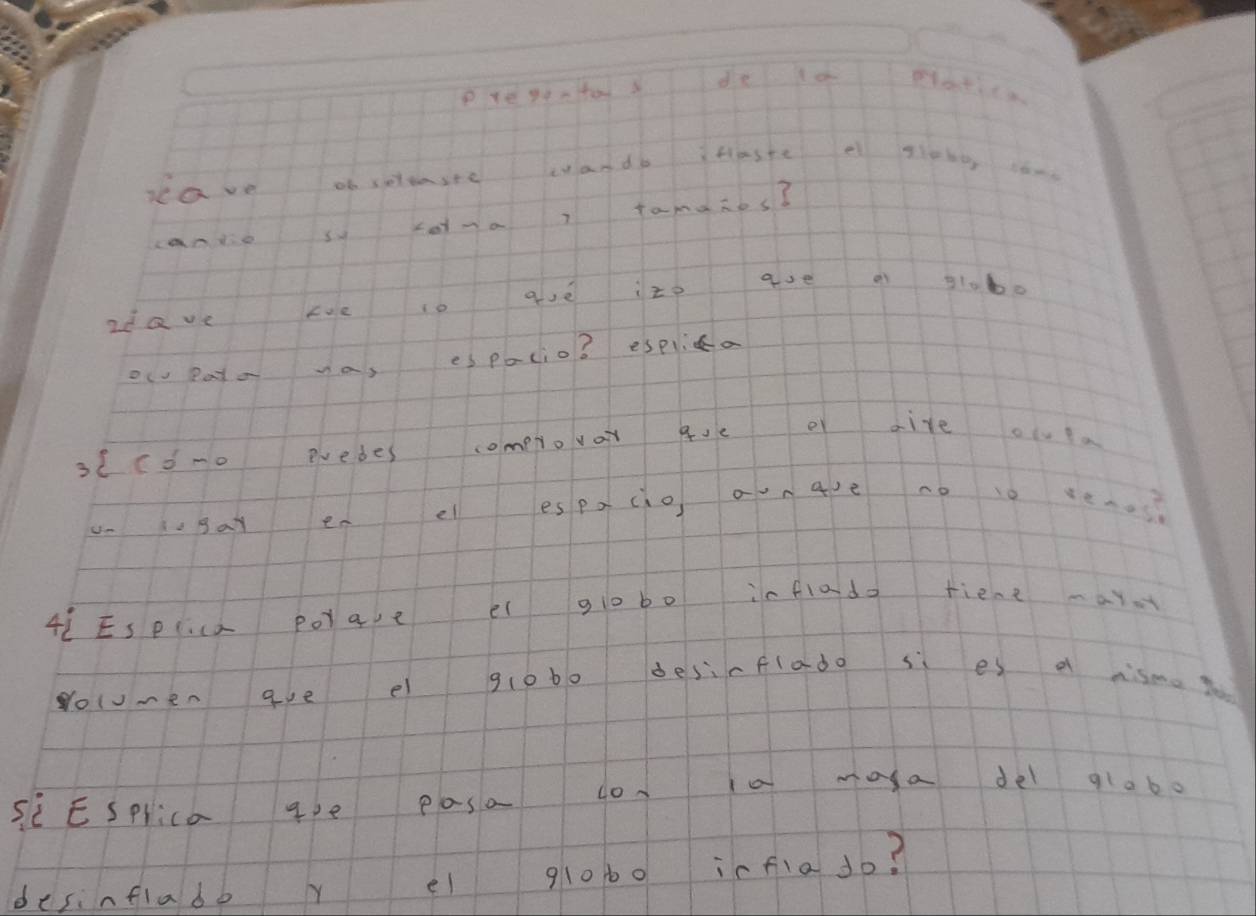 Preguntas de la Platica
1¿Que observaste cuando iflaste el globo, como
canvio su forma y tamaños?
2¿Que fue lo qué izo que el globo
ocupara mas espacio? esplica
3¿Cómo puedes comprovar que el aire ocupa
un lugar en el espacio, aunque no lo vemos?
4¿Esplica porque el globo inflado tiene mayor
volumen que el globo desinflado si es el mismo
5¿Esplica que pasa con la masa del globo
desinflado y el globo inflado?